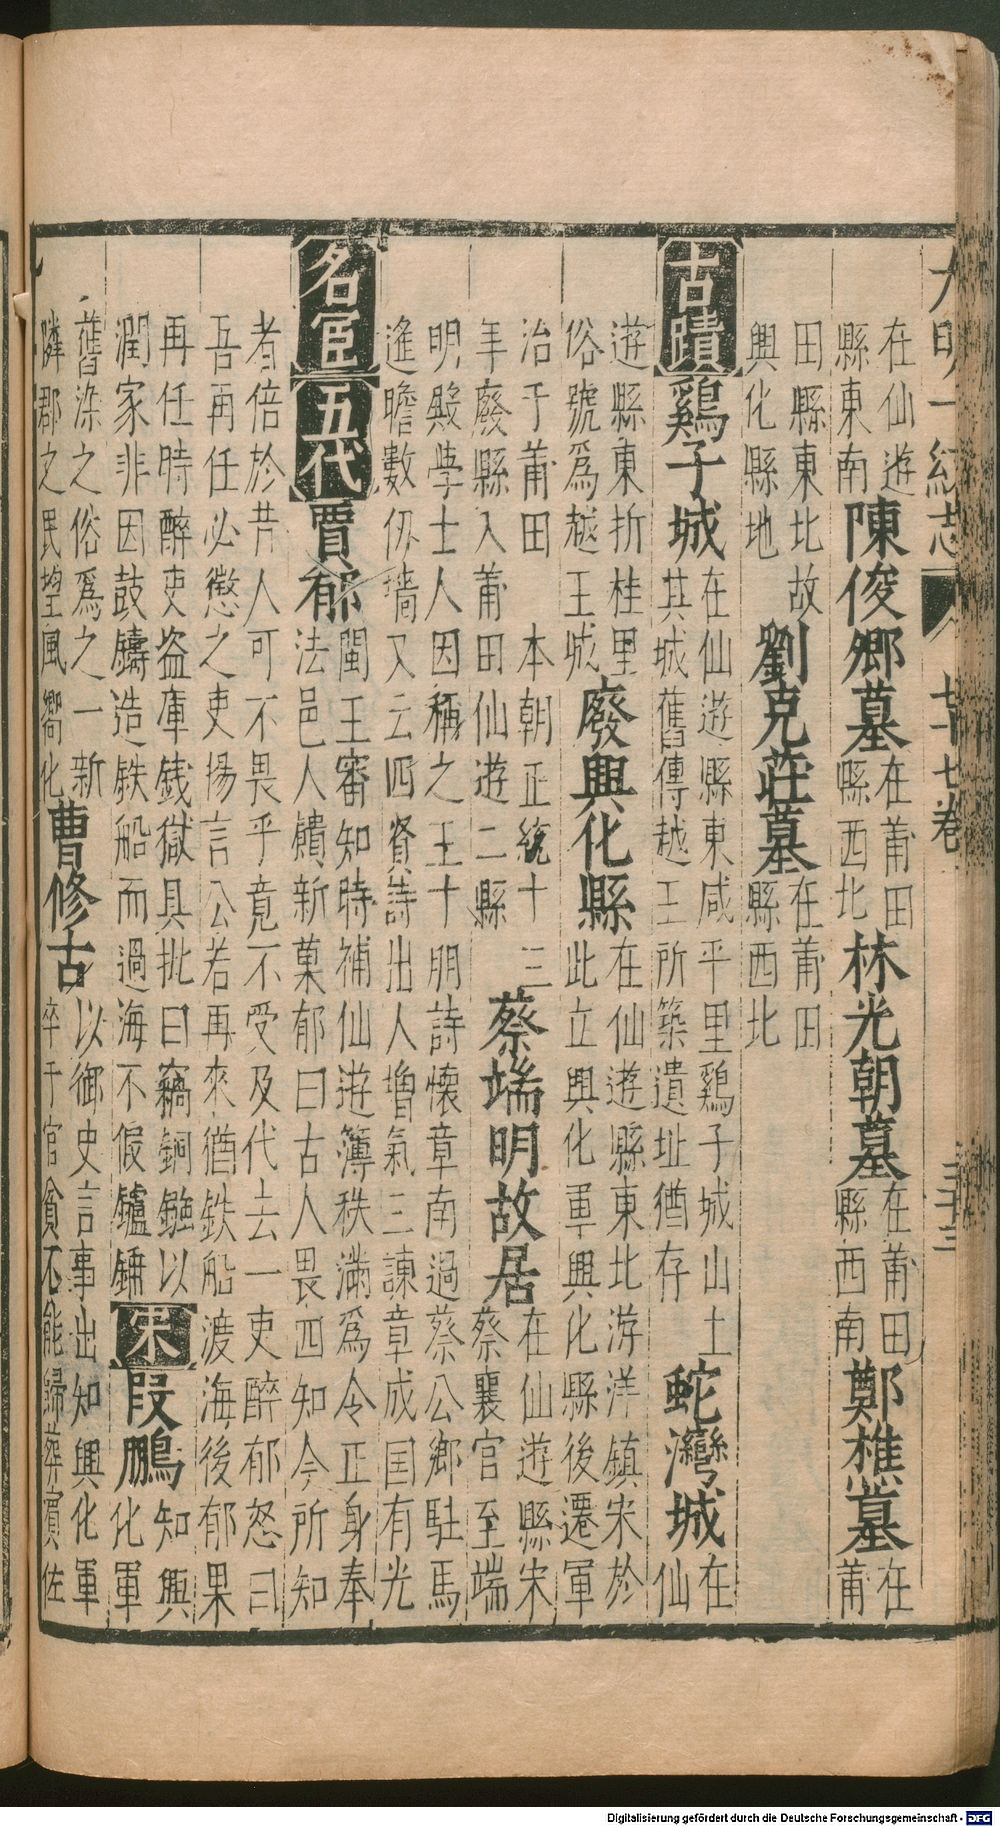 大明一統志 七十七卷 三十三
在仙遊縣東南 陳俊卿墓 在莆田縣西北 林光朝墓 在莆田縣西南 鄭樵墓 在莆
田縣東北故興化縣地 劉克莊墓 在莆田縣西北
古蹟 鷄子城 在仙遊縣東咸平里鷄子城山土其城舊傳越王所築遺址猶存 蛇灣城 在仙
遊縣東折桂里俗號爲越王城 廢興化縣 在仙遊縣東北游洋鎮宋於此立興化軍興化縣後遷軍
治于莆田 本朝正統十三年廢縣入莆田仙遊二縣 蔡端明故居 在仙遊縣宋蔡襄官至端
明殿學士人因稱之王十朋詩懷章南過蔡公鄉駐馬遙瞻數仭墻又云四賢詩出人增氣三諫章成国有光
名臣 五代 賈郁 閩王審知時補仙遊簿秩滿爲令正身奉法邑人饋新菓郁曰古人畏四知今所知
者倍於昔人可不畏乎竟不受及代去一吏醉郁怒曰吾再任必懲之吏揚言公若再來猶鉄船渡海後郁果
再任時醉吏盗庫銭獄具批曰竊銅鏹以潤家非因鼓鑄造鉄船而過海不假鑪鎚 宋 段鵬 知興化軍
舊染之俗爲之一新隣郡之民望風嚮化 曹修古 以御史言事出知興化軍卒于官貧不能歸葬賓佐
Digitalisierung gefördert durch die Deutsche Forschungsgemeinschaft - DFG